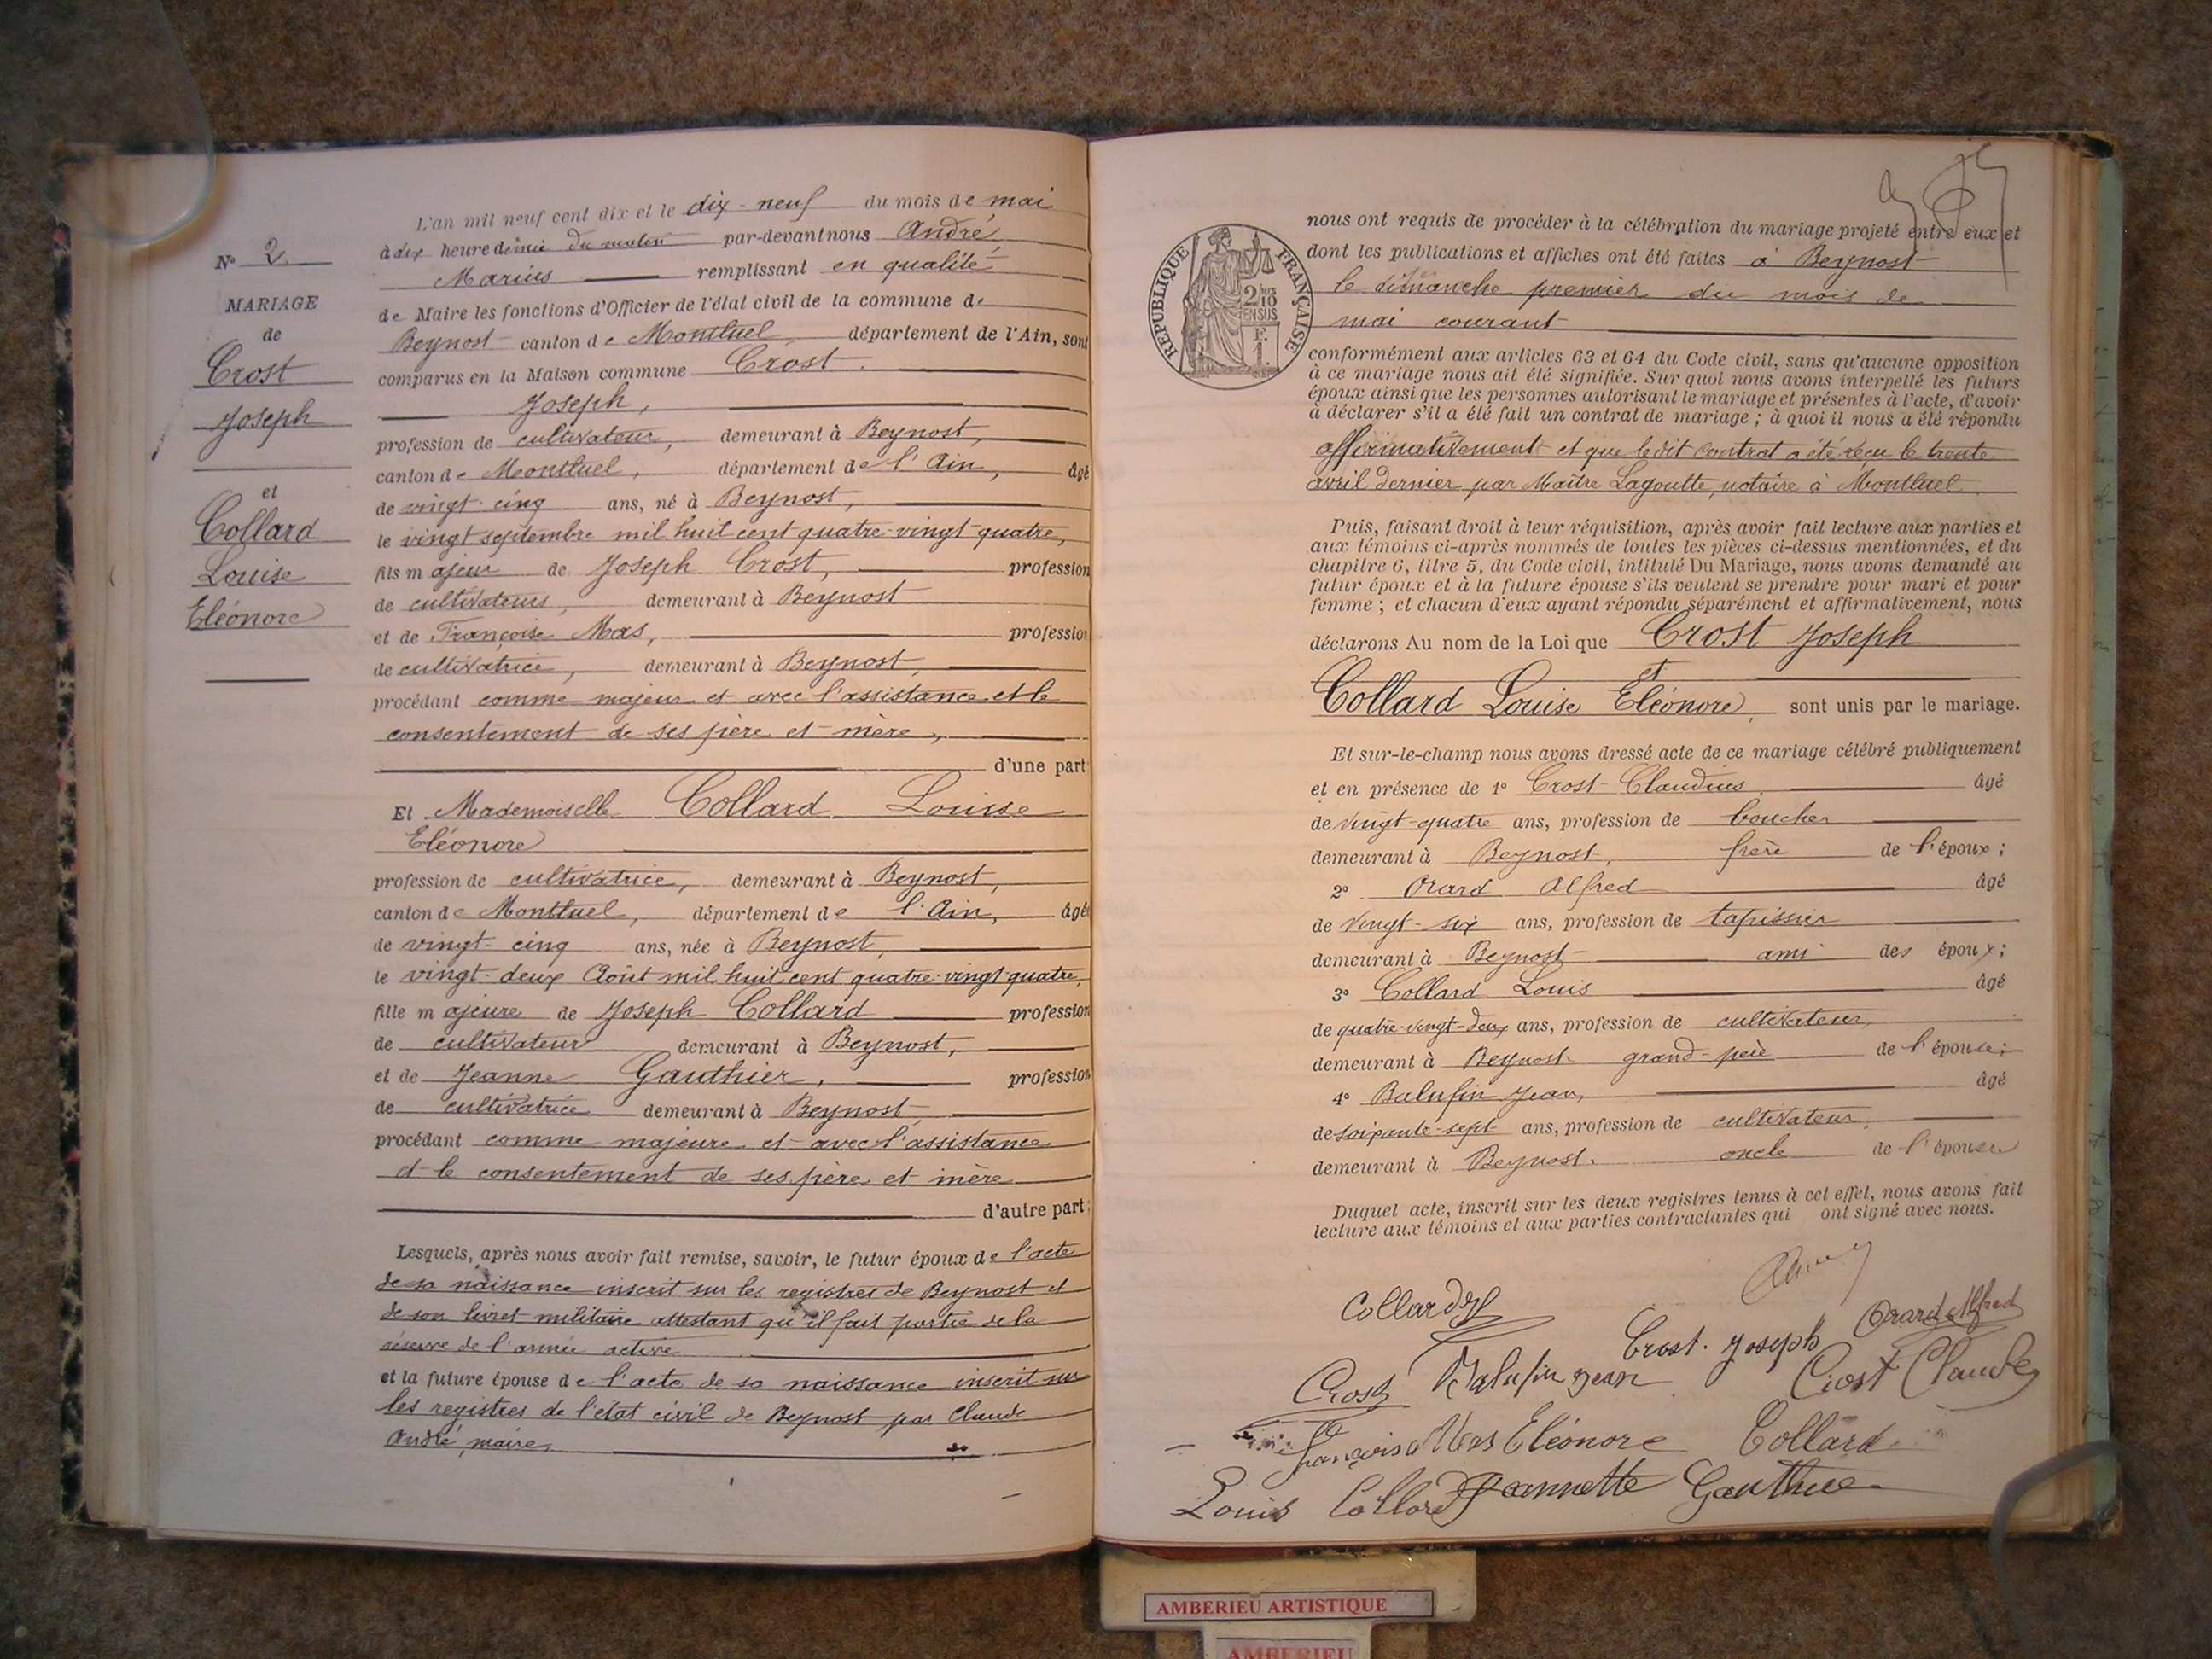 N° 2
MARIAGE
de
Crost
Joseph
et
Collard
Louise
Eléonore
L'an mil neuf cent dix et le dix-neuf du mois de mai
à dix heure demie du matin par-devant nous André
Marius remplissant en qualité
de Maire les fonctions d'Officier de l'état civil de la commune de
Beynost canton de Montluel département de l'Ain, sont
comparus en la Maison commune Crost
Joseph,
profession de cultivateur, demeurant à Beynost,
canton de Montluel, département de l'Ain, âgé
de vingt-cinq ans, né à Beynost,
le vingt septembre mil huit cent quatre-vingt-quatre,
fils majeur de Joseph Crost, profession
de cultivateurs, demeurant à Beynost
et de Françoise Mas, profession
de cultivatrice, demeurant à Beynost,
procédant comme majeur et avec l'assistance et le
consentement de ses père et mère,
d'une part
Et Mademoiselle Collard Louise
Eléonore
profession de cultivatrice, demeurant à Beynost,
canton de Montluel, département de l'Ain, âgée
de vingt-cinq ans, née à Beynost,
le vingt-deux Août mil huit cent quatre-vingt-quatre,
fille majeure de Joseph Collard profession
de cultivateur demeurant à Beynost,
et de Jeanne Gauthier, profession
de cultivatrice demeurant à Beynost,
procédant comme majeure et avec l'assistance
et le consentement de ses père et mère
d'autre part;
Lesquels, après nous avoir fait remise, savoir, le futur époux de l'acte
de sa naissance inscrit sur les registres de Beynost et
de son livret militaire attestant qu'il fait partie de la
réserve de l'armée active
et la future épouse de l'acte de sa naissance inscrit sur
les registres de l'état civil de Beynost par Claude
André, maire,
RÉPUBLIQUE FRANÇAISE
2/10
EN SUS
F.
1.
nous ont requis de procéder à la célébration du mariage projeté entre eux et
dont les publications et affiches ont été faites à Beynost
le dimanche premier du mois de
mai courant
conformément aux articles 63 et 64 du Code civil, sans qu'aucune opposition
à ce mariage nous ait été signifiée. Sur quoi nous avons interpellé les futurs
époux ainsi que les personnes autorisant le mariage et présentes à l'acte, d'avoir
à déclarer s'il a été fait un contrat de mariage; à quoi il nous a été répondu
affirmativement et que ledit contrat a été reçu le trente
avril dernier par Maître Lagoutte, notaire à Montluel.
Puis, faisant droit à leur réquisition, après avoir fait lecture aux parties et
aux témoins ci-après nommés de toutes les pièces ci-dessus mentionnées, et du
chapitre 6, titre 5, du Code civil, intitulé Du Mariage, nous avons demandé au
futur époux et à la future épouse s'ils veulent se prendre pour mari et pour
femme; et chacun d'eux ayant répondu séparément et affirmativement, nous
déclarons Au nom de la Loi que Crost Joseph
et
Collard Louise Eléonore, sont unis par le mariage.
Et sur-le-champ nous avons dressé acte de ce mariage célébré publiquement
et en présence de 1° Crost Claudius âgé
de vingt-quatre ans, profession de boucher
demeurant à Beynost, frère de l'époux;
2° Orard Alfred âgé
de vingt-six ans, profession de tapissier
demeurant à Beynost ami des époux;
3° Collard Louis âgé
de quatre-vingt-deux ans, profession de cultivateur,
demeurant à Beynost grand-père de l'épouse;
4° Balufin Jean, âgé
de soixante-sept ans, profession de cultivateur,
demeurant à Beynost. oncle de l'épouse
Duquel acte, inscrit sur les deux registres tenus à cet effet, nous avons fait
lecture aux témoins et aux parties contractantes qui ont signé avec nous.
Collard
Crost Joseph
Orard Alfred
Crost
Balufin Jean
Crost Claude
Françoise Mas
Eléonore Collard
Louis Collard
Jeannette Gauthier
AMBERIEU ARTISTIQUE
AMBERIEU